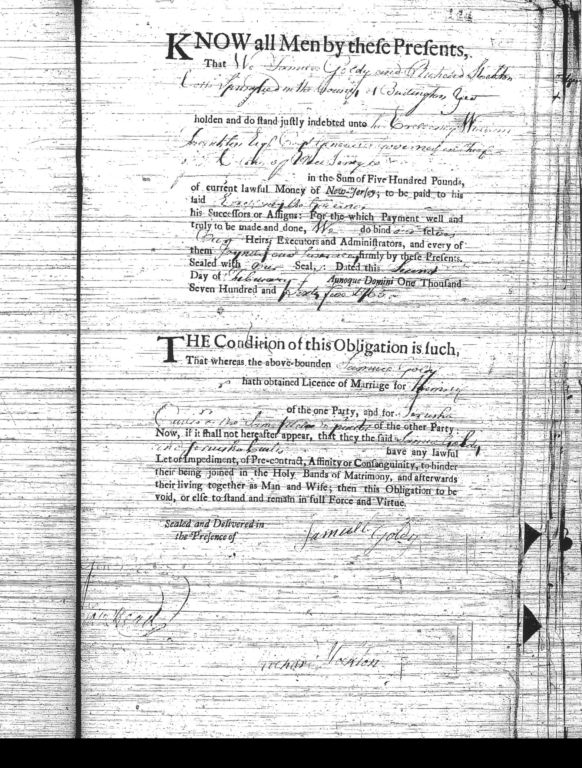 KNOW all Men by theſe Preſents,
That We Samuel Goldy and Richard Stockton
Springfield in the County of Burlington
holden and do ſtand juſtly indebted unto his Excellency William
Franklin Esqr Governor in Chief
of New Jerſey
in the Sum of Five Hundred Pounds,
of current lawful Money of New-Jerſey; to be paid to his
ſaid Excellency the Governor
his Succeſſors or Aſſigns: For the which Payment well and
truly to be made and done, We do bind our ſelves
our Heirs, Executors and Adminiſtrators, and every of
them jointly and ſeverally firmly by theſe Preſents.
Sealed with our Seal, Dated this
Day of February Annoque Domini One Thouſand
Seven Hundred and Sixty five 1765.
THE Condition of this Obligation is ſuch,
That whereas the above-bounden Samuel Goldy
hath obtained Licence of Marriage for himſelf
of the one Party, and for Jeruſha
of the other Party;
Now, if it ſhall not hereafter appear, that they the ſaid Samuel Goldy
and Jeruſha have any lawful
Let or Impediment, of Pre-contract, Affinity or Conſanguinity, to hinder
their being joined in the Holy Bands of Matrimony, and afterwards
their living together as Man and Wife; then this Obligation to be
void, or elſe to ſtand and remain in full Force and Virtue.
Sealed and Delivered in
the Preſence of
Samuel Goldy
Read
Richard Stockton